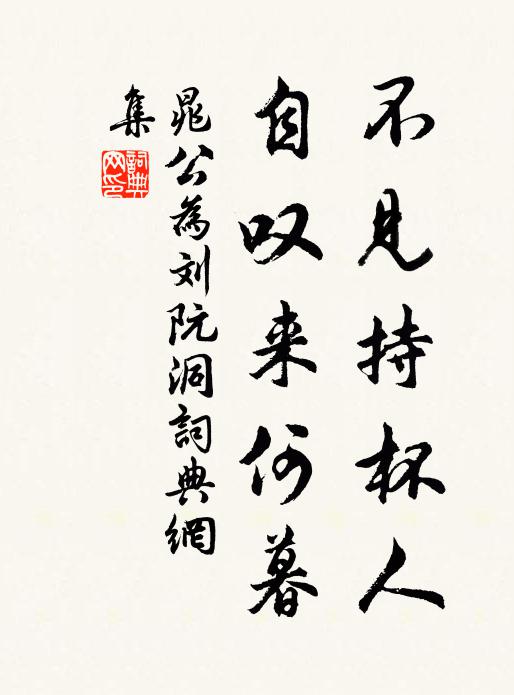 不见持杯人
自叹来何暮
晁公為刘阮洞詞典網
集
詞典网印